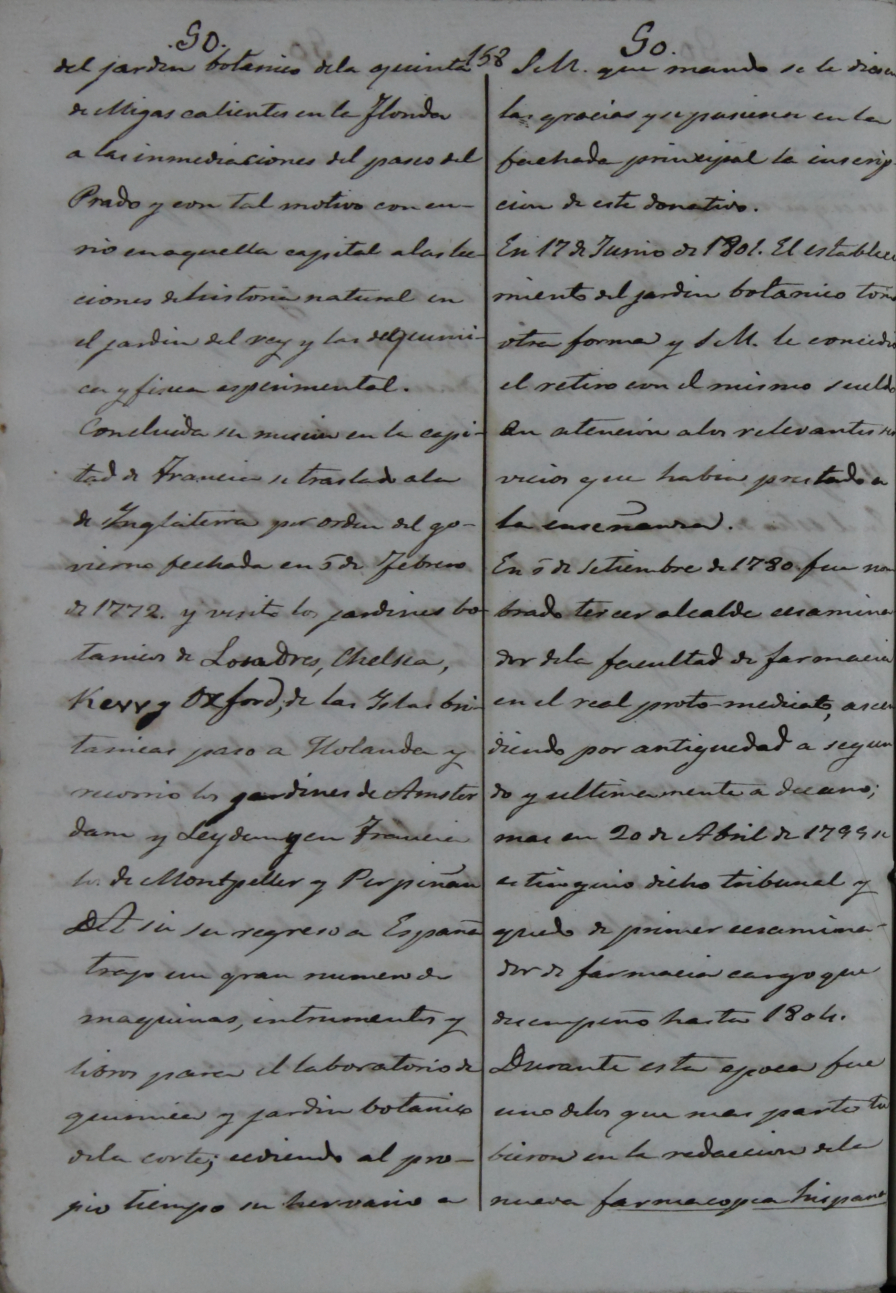 GO.
158
GO.
del jardin botanico dela quinta
de Migas calientes en la Florida
a las inmediaciones del paseo del
Prado y con tal motivo con cu-
rio en aquella capital a las lec-
ciones de historia natural en
el jardin del rey y las de quimi-
ca y fisica esperimental.
Concluida su mision en la capi-
tad de Francia se traslado a la
de Inglaterra por orden del go-
vierno fechada en 5 de Febrero
de 1772. y visito los jardines bo-
tanicos de Londres, Chelsea,
Kew y Oxford, de las Islas bri-
tanicas paso a Holanda y
recorrio los jardines de Amster
dam y Leyden y en Francia
los de Montpeller y Perpiñan
A su regreso a España
trajo un gran numero de
maquinas, intrumentos y
libros para el laboratorio de
quimica y jardin botanico
dela corte; cediendo al pro-
pio tiempo su hervario a
S. M. que mando se le diesen
las gracias y se pusiese en la
fachada principal la inscrip
cion de este donativo.
En 17 de Junio de 1801. El establec
miento del jardin botanico tom
otra forma y S. M. le concedi
el retiro con el mismo sueldo
en atencion a los relevantes se
vicios que habia prestado a
la enseñanza.
En 5 de Setiembre de 1780 fue nom
brado tercer alcalde ecsamina
dor dela facultad de farmacia
en el real proto-medicato, ascen
diendo por antiguedad a segun
do y ultimamente a decano;
mas en 20 de Abril de 1799 se
estinguio dicho tribunal y
quedo de primer ecsamina-
dor de farmacia cargo que
desempeño hasta 1804.
Durante esta epoca fue
uno delos que mas parte tu
bieron en la redaccion dela
nueva farmacopea hispana